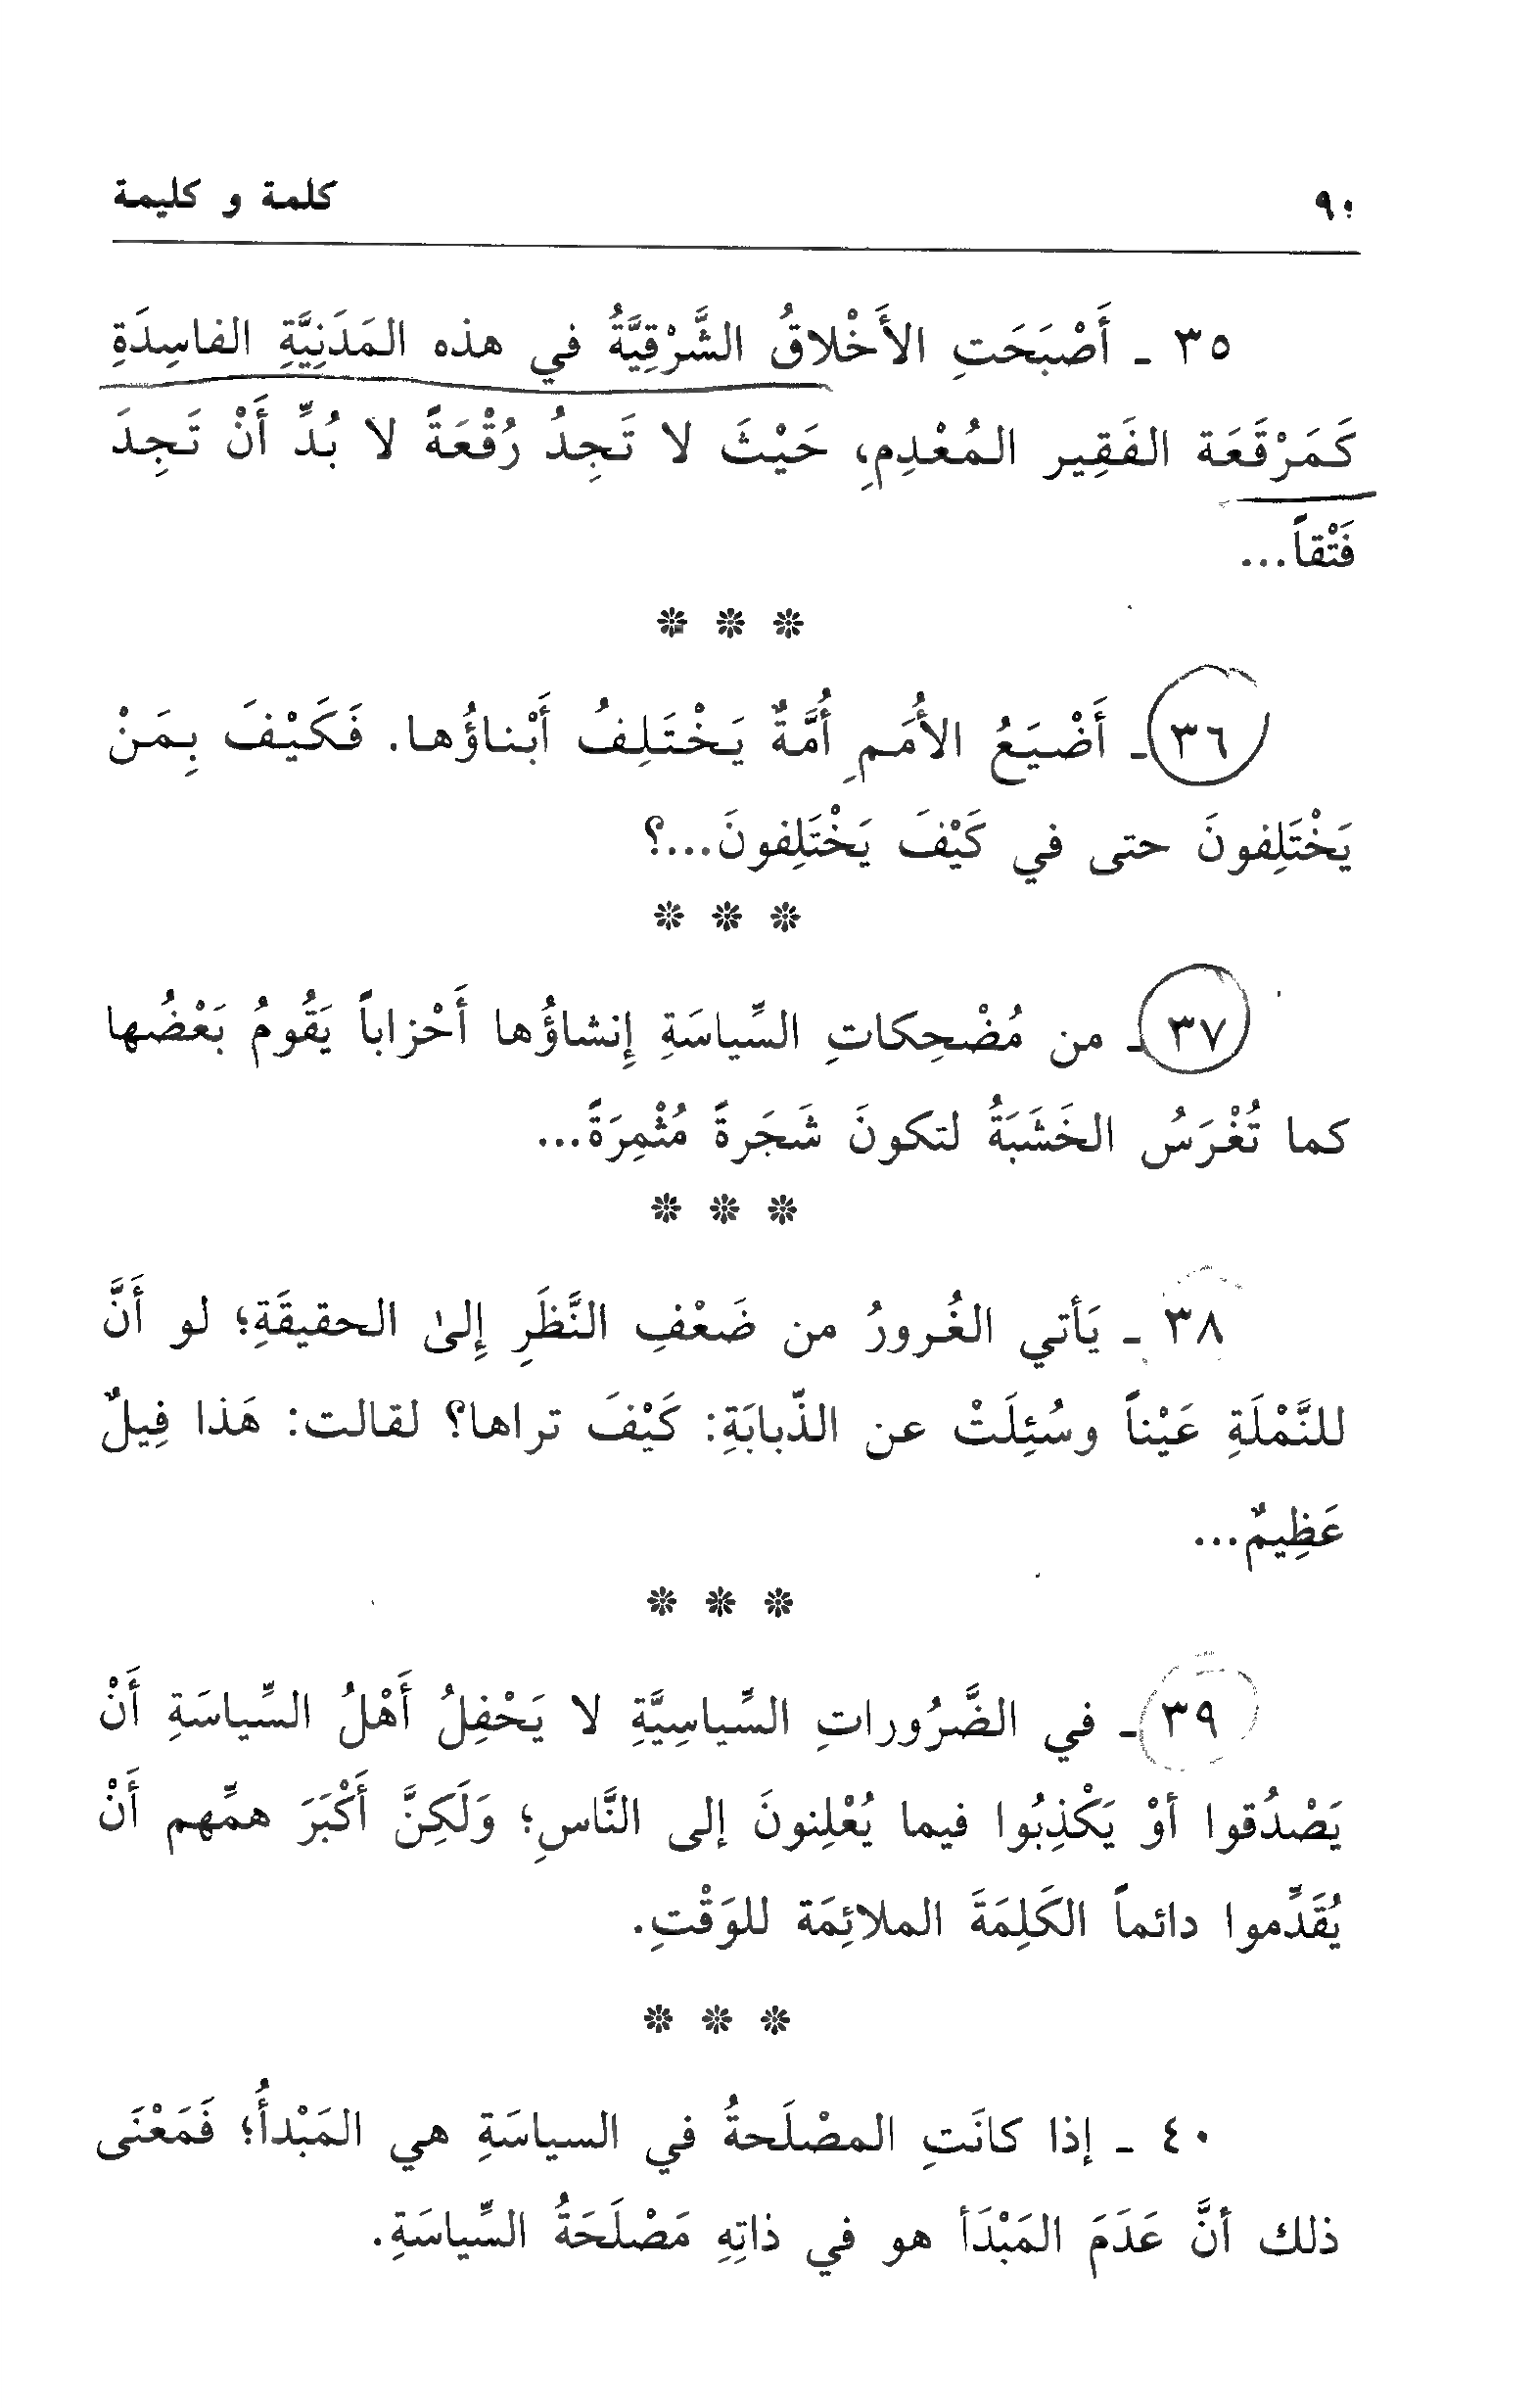 ٩٠
كلمة و كليمة
٣٥ ـ أَصْبَحَتِ الأَخْلاقُ الشَّرْقِيَّةُ في هذه المَدَنِيَّةِ الفاسِدَةِ
كَمَرْقَعَة الفَقِير المُعْدِمِ، حَيْثَ لا تَجِدُ رُقْعَةً لا بُدَّ أَنْ تَجِدَ
فَتْقاً...
* * *
٣٦ ـ أَضْيَعُ الأُمَمِ أُمَّةٌ يَخْتَلِفُ أَبْناؤُها. فَكَيْفَ بِمَنْ
يَخْتَلِفونَ حتى في كَيْفَ يَخْتَلِفونَ...؟
* * *
٣٧ ـ من مُضْحِكاتِ السِّياسَةِ إِنشاؤُها أَحْزاباً يَقُومُ بَعْضُها
كما تُغْرَسُ الخَشَبَةُ لتكونَ شَجَرةً مُثْمِرَةً...
* * *
٣٨ ـ يَأتي الغُرورُ من ضَعْفِ النَّظَرِ إِلىٰ الحقيقَةِ؛ لو أَنَّ
للنَّمْلَةِ عَيْناً وسُئِلَتْ عن الذّبابَةِ: كَيْفَ تراها؟ لقالت: هَذا فِيلٌ
عَظِيمٌ...
* * *
٣٩ ـ في الضَّرُوراتِ السِّياسِيَّةِ لا يَحْفِلُ أَهْلُ السِّياسَةِ أَنْ
يَصْدُقوا أوْ يَكْذِبُوا فيما يُعْلِنونَ إلى النَّاسِ؛ وَلَكِنَّ أَكْبَرَ همِّهم أَنْ
يُقَدِّموا دائماً الكَلِمَةَ الملائِمَة للوَقْتِ.
* * *
٤٠ ـ إذا كانَتِ المصْلَحةُ في السياسَةِ هي المَبْدأُ؛ فَمَعْنَى
ذلك أنَّ عَدَمَ المَبْدَأ هو في ذاتِهِ مَصْلَحَةُ السِّياسَةِ.